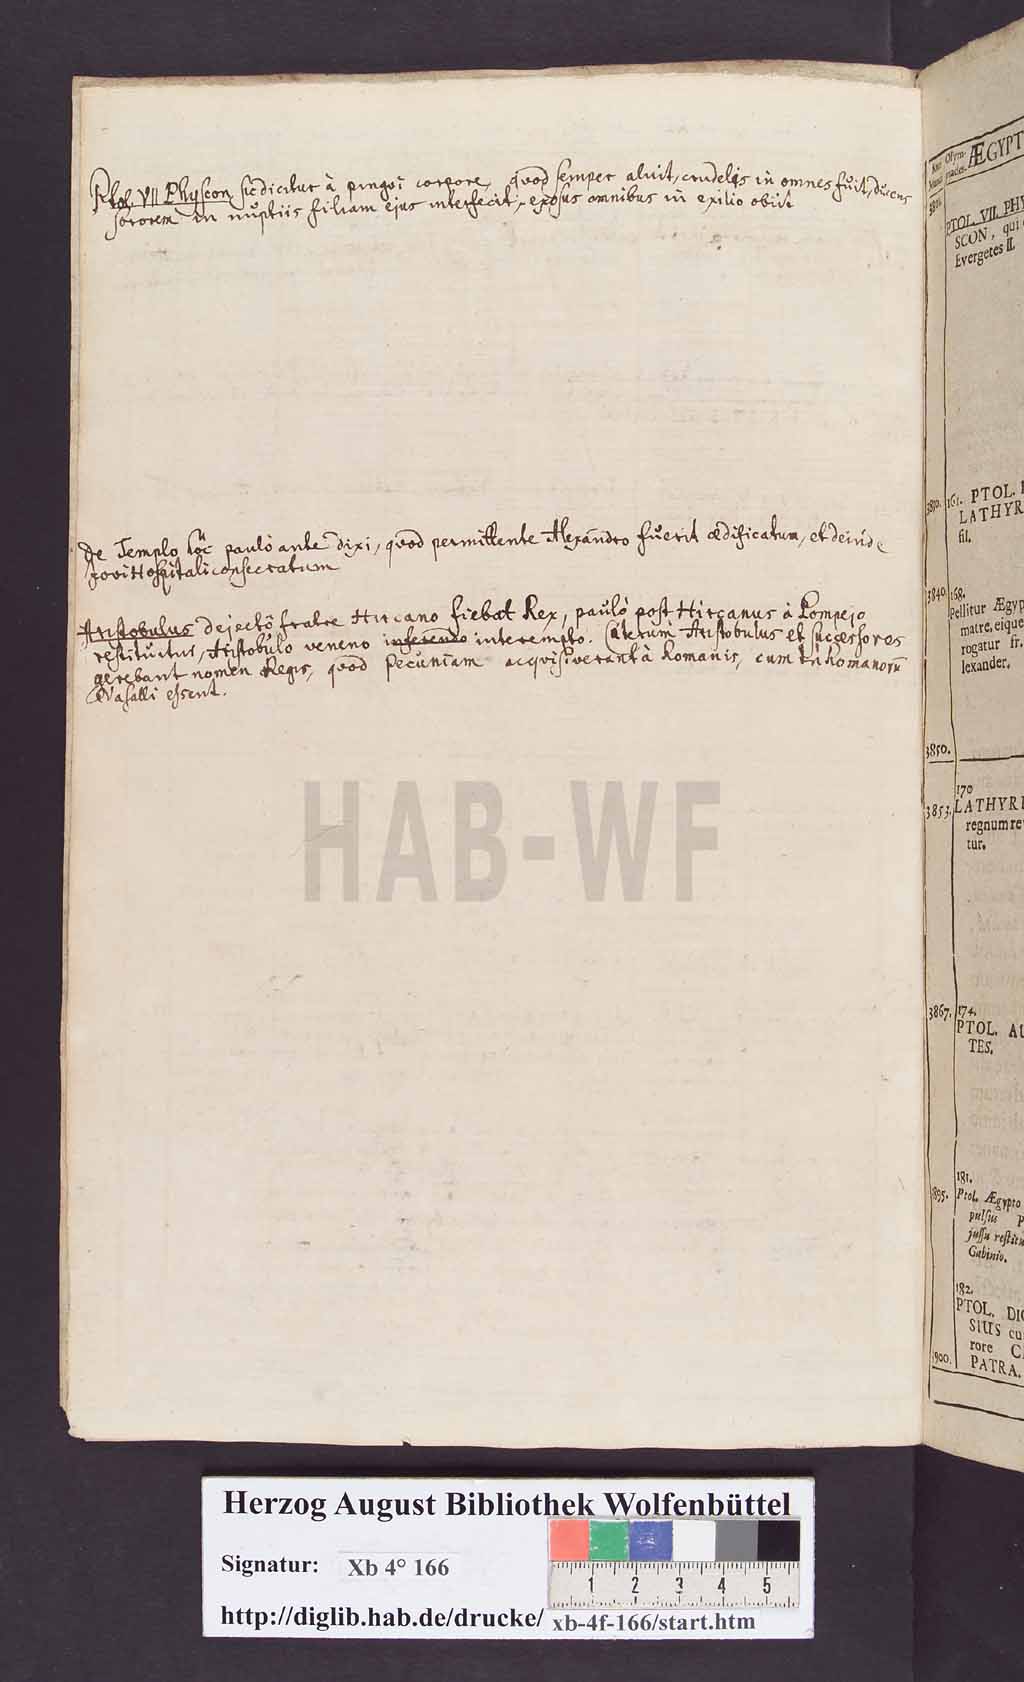 Ptol. VII Physcon sic dicitur à pingvi corpore, qvod semper aluit, crudelis in omnes fuit, ducens
sororem in nuptiis filiam ejus interfecit, exosus omnibus in exilio obiit
de Templo hôc paulo ante dixi, qvod permittente Alexandro fuerit ædificatum, et deinde
Jovi Hospitali consecratum
Aristobulus dejectô fratre Hircano fiebat Rex, paulò post Hircanus à Pompejo
restitutus, Aristobulo veneno interempto. Cæterum Aristobulus et successores
gerebant nomen Regis, qvod pecuniam acqvisiverant à Romanis, cum Romanorũ
Vasalli essent.
HAB-WF
Ann. Olym- ÆGYPT
Mundi piades.
PTOL. VII. PHY
SCON, qui
Evergetes II.
161. PTOL.
LATHYR
fil.
3840. 168.
Pellitur Ægyp
matre, eique
rogatur fr.
lexander.
3850.
170
3853. LATHYRI
regnum re
tur.
3867. 174.
PTOL. AU
TES.
181.
3895. Ptol. Ægypto
pulsus p
jussu restitu
Gabinio.
182.
PTOL. DIO
SIUS cu
rore C
PATRA.
Herzog August Bibliothek Wolfenbüttel
Signatur: Xb 4° 166
1 2 3 4 5
http://diglib.hab.de/drucke/ xb-4f-166/start.htm